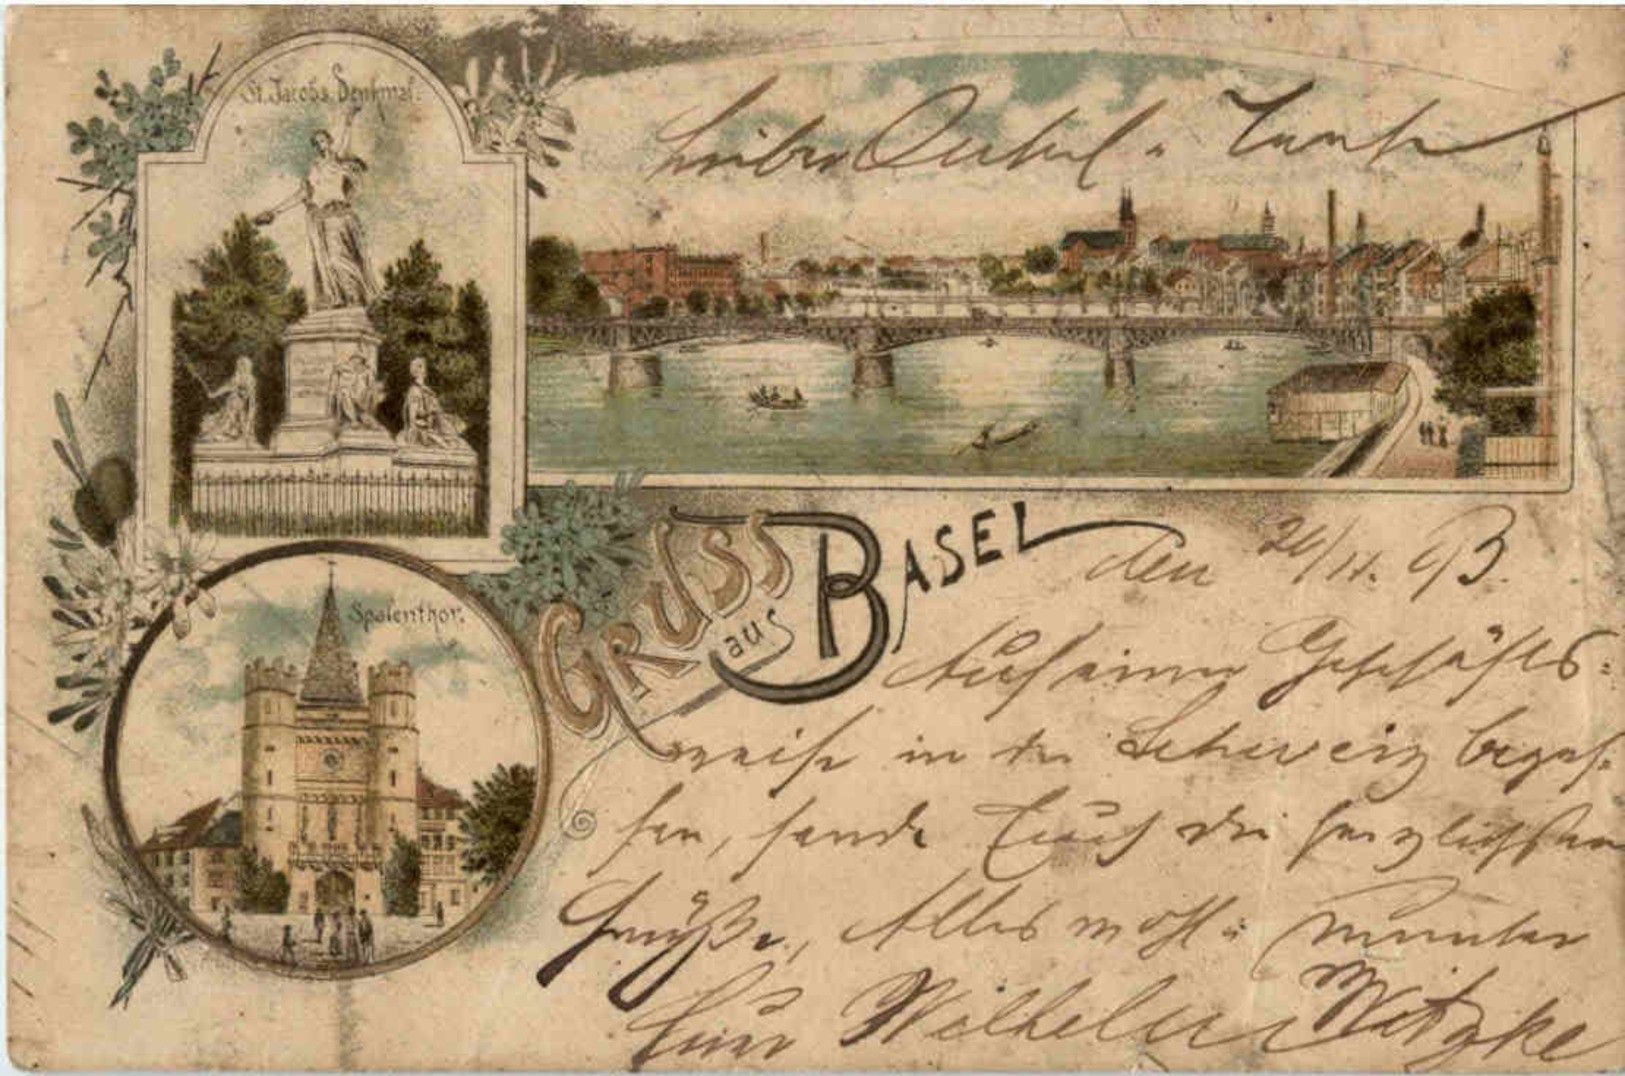 St. Jacobs Denkmal.
Lieber Onkel u Tante
Gruss aus Basel
Spalenthor.
den 20/11. 93.
Auf einer Geschäfts-
reise in der Schweiz begrif-
fen, sende Euch die herzlichsten
Grüße, Alles wohl u munter
Euer Wilhelm Witzke